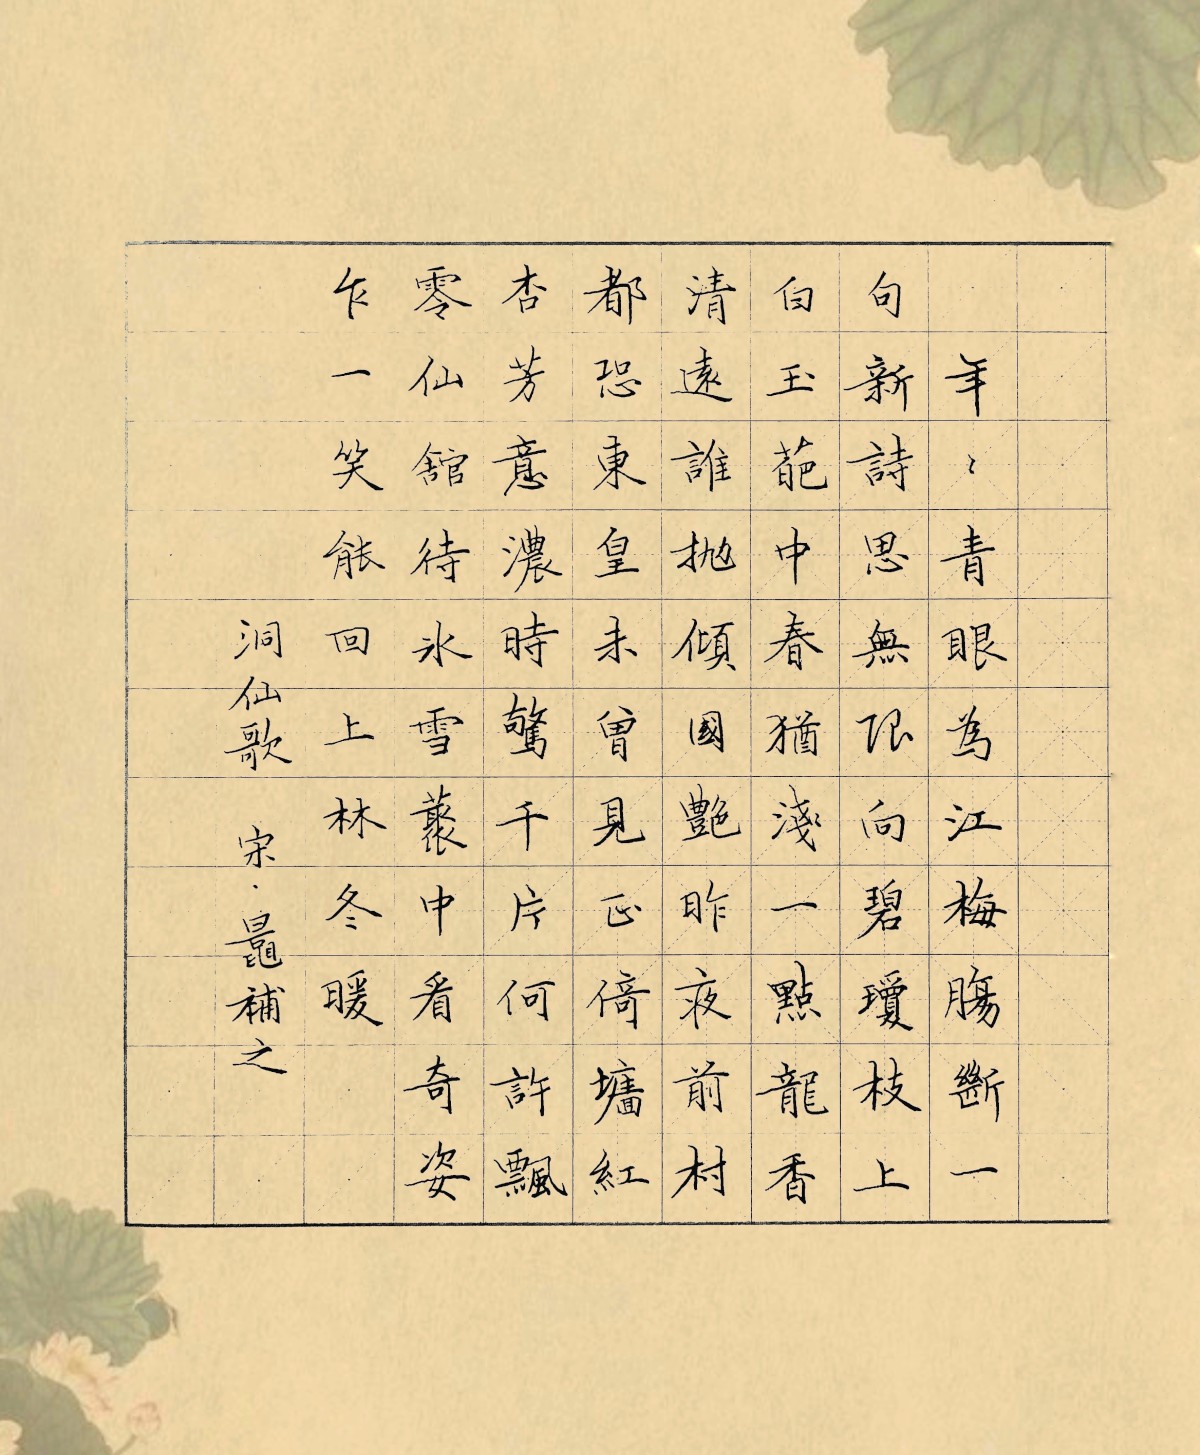 年〻青眼為江梅腸斷一
句新詩思無限向碧瓊枝上
白玉葩中春猶淺一點龍香
清遠誰拋傾國艷昨夜前村
都恐東皇未曾見正倚墻紅
杏芳意濃時驚千片何許飄
零仙舘待氷雪叢中看奇姿
乍一笑能回上林冬暖
洞仙歌 宋·晁補之